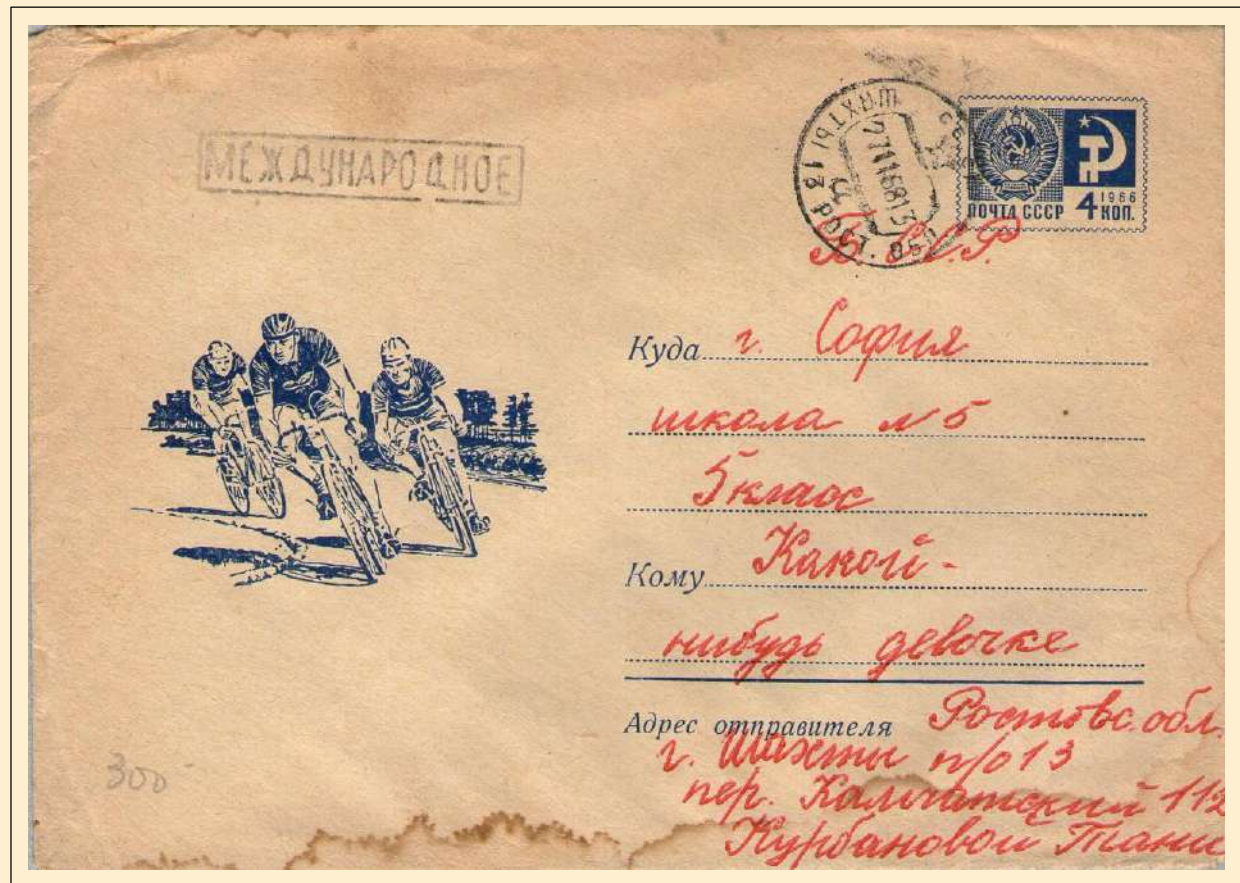 МЕЖДУНАРОДНОЕ
ШАХТЫ 13 РОСТ. ОБЛ
1966
ПОЧТА СССР 4 КОП.
Куда г. София
школа N 5
5 класс
Кому Какой-
нибудь девочке
Адрес отправителя Ростовс. обл.
г. Шахты п/о 13
пер. Камчатский 112
Курбановой Тани
300